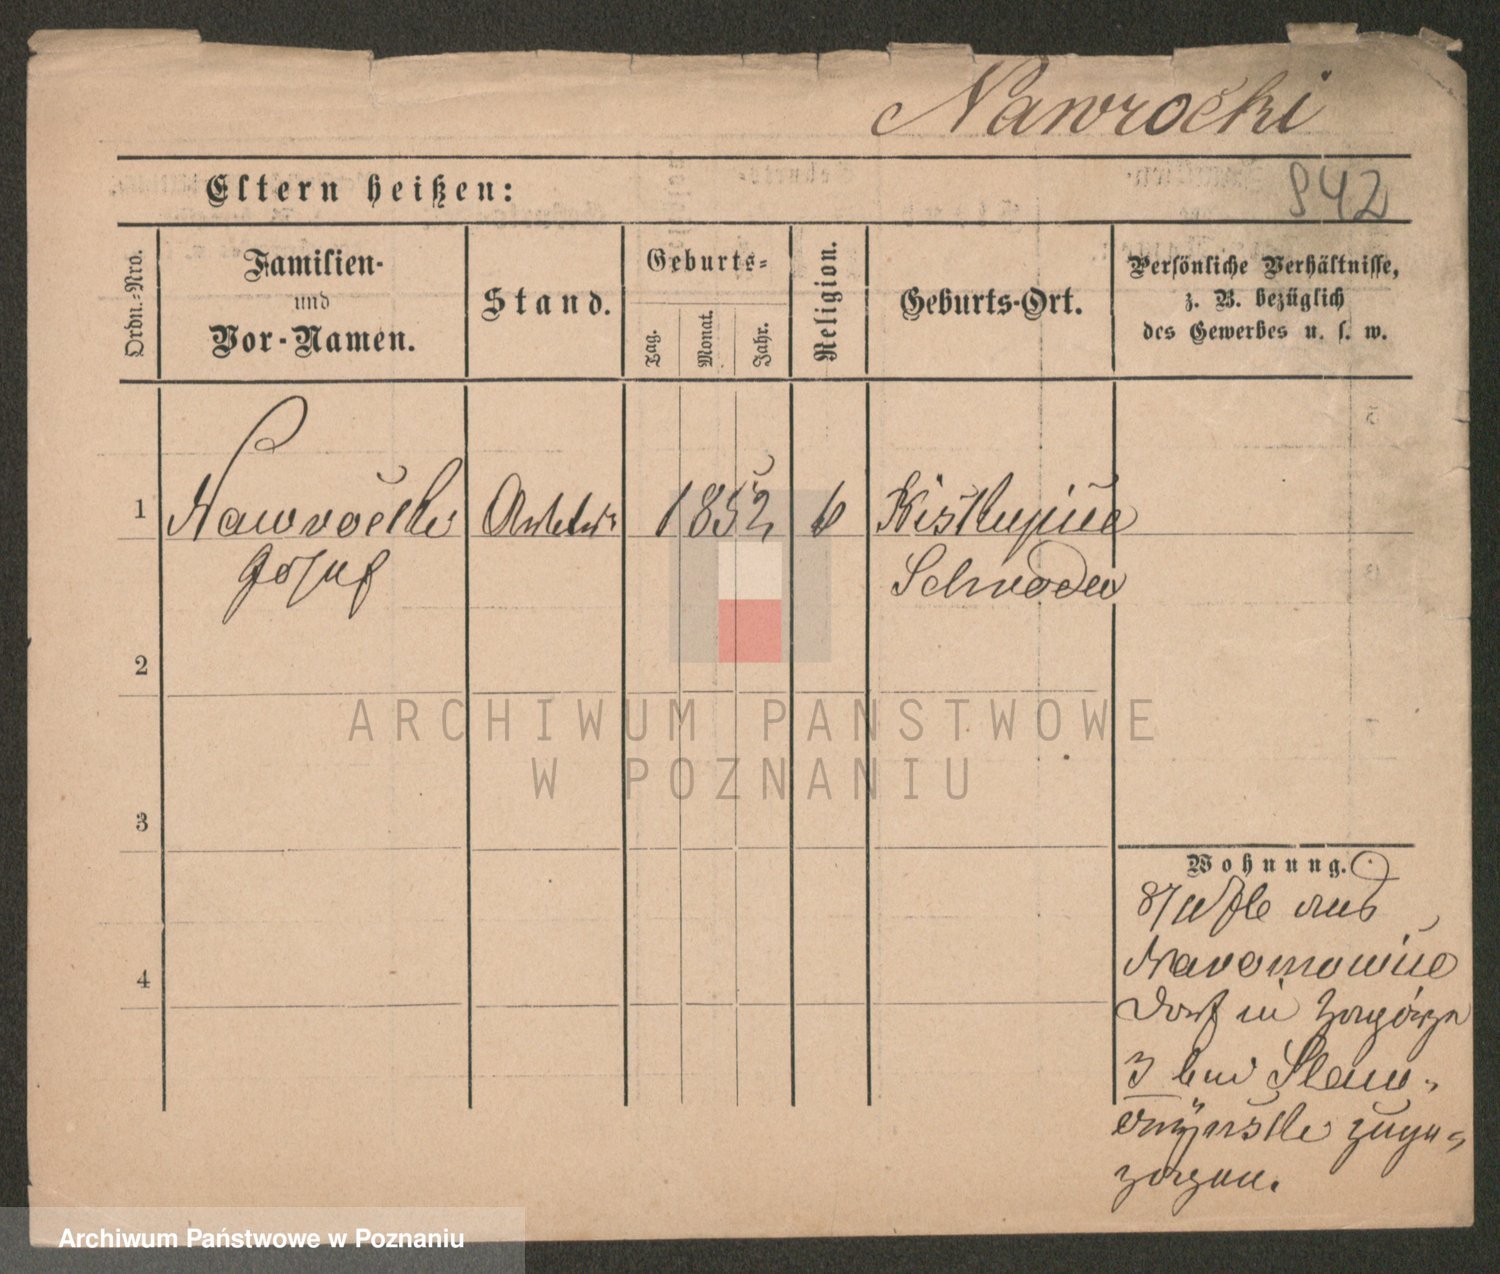 Nawrocki
Eltern heißen:
942
Ordn.-Nro.
Familien-
und
Vor-Namen.
Stand.
Geburts-
Tag.
Monat.
Jahr.
Religion.
Geburts-Ort.
Persönliche Verhältnisse,
z. B. bezüglich
des Gewerbes u. s. w.
1
Nawrocki
Josef
1852
Schroda
2
3
4
Wohnung.
aus
Dorf in Zagórze
3 bei
zuge-
zogen.
ARCHIWUM PAŃSTWOWE
W POZNANIU
Archiwum Państwowe w Poznaniu